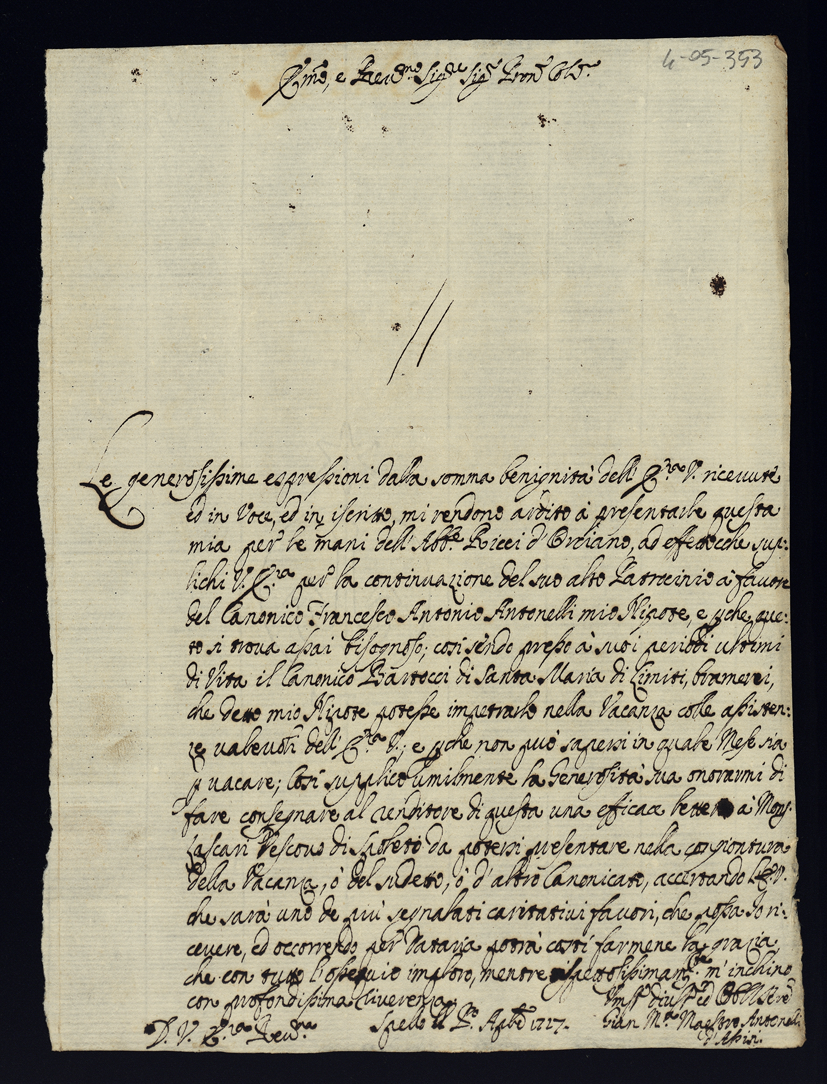 4-05-353
Em̃o, e Rev.mo Sig.re Sig.r Pron.e Col.mo
Le generosissime espressioni dalla somma benignità dell' Em.za V. riceuute
ed in Voce, ed in iscritto, mi rendono ardito à presentarle questa
mia per le mani dell' Abb.e Ricci d'Orciano, ad effettocche sup:
lichi V. Em.za per la continuazione del suo alto Patrocinio à fauore
del Canonico Francesco Antonio Antonelli mio Nipote, e che que:
sto si troua assai bisognoso; così sendo presso à suoi periodi ultimi
di Vita il Canonico Bartocci di Santa Maria di Limiti, bramerei,
che detto mio Nipote potesse impetrarlo nella Vacanza colle assisten:
ze valeuoli dell' Em.za V.; e che non può sapersi in quale Mese sia
p vacare; Così supplico umilmente la Generosità sua onorarmi di
fare consegnare al renditore di questa una efficace lettera à Mons.
Lascari Vescouo di Spoleto da potersi presentare nella congiontura
della Vacanza, ò del sudetto, ò d'altro Canonicato, accertando V.
che sarà uno de più segnalati caritatiui fauori, che possa Io ri:
ceuere, ed occorrendo per Dataria potrà costì farmene la grazia,
che con tutto l'ossequio imploro, mentre rispettosissimam.te m'inchino
con profondissima riuerenza
D. V. Em.za Reu.ma Spello il P.o Aple 1727.
Vm.o Diu.o ed Obb.o Ser.e
Gian M.a Maestro Antonelli
d'Assisi.